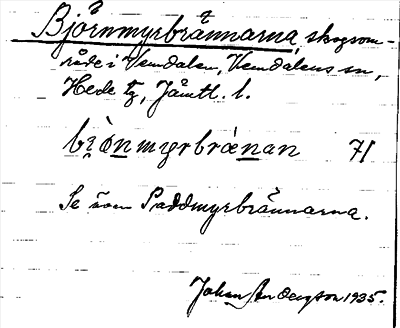 Björnmyrbrännarna, skogsom-
råde i Vemdalen, Vemdalens sn,
Hede tg, Jämtl. l.
bi̯ö̀n̲myrbrǽn̲an 71
Se även Paddmyrbrännarna.
Johan 1935.